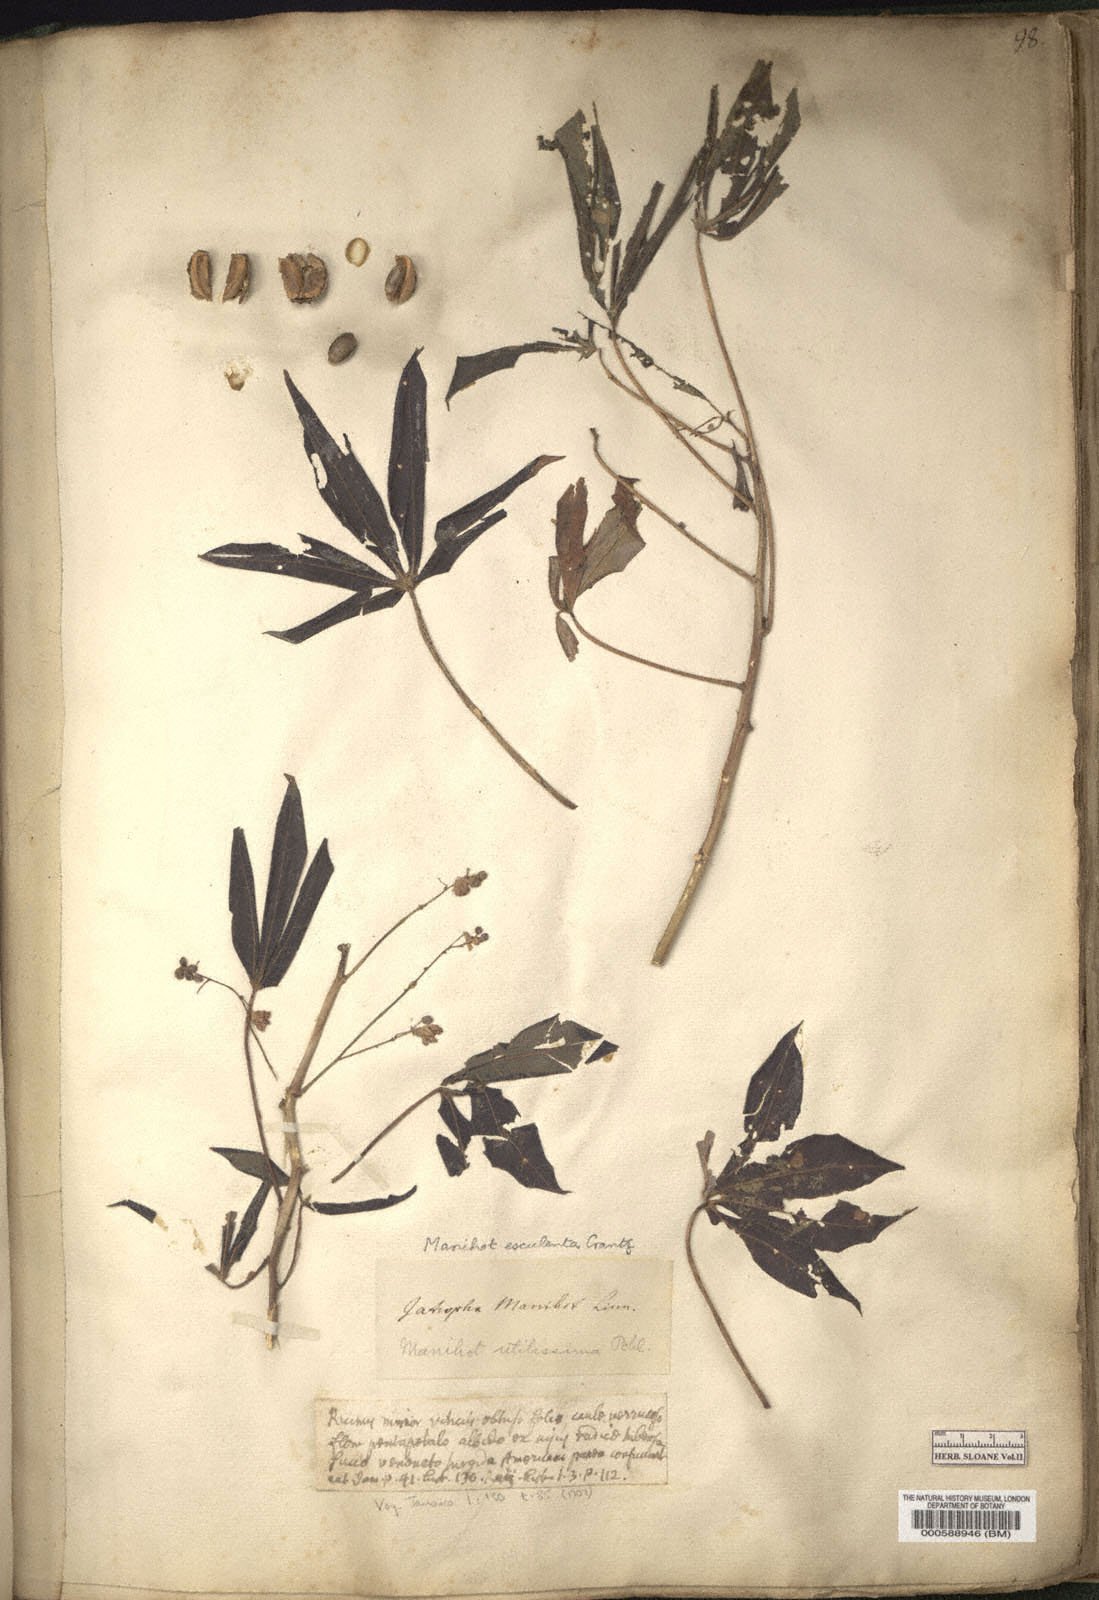 98.
Manihot esculenta Crantz
Jatropha Manihot Linn.
Manihot utilissima Pohl.
Ricinus minor viticis obtuso folio, caule verrucoso
flore pentapetalo albido ex cujus radice tuberosa
succo venenato turgida Americani panem conficiunt
cat. Jam. p. 41. hist. 130. Raij. hist. t. 3. p. 112.
Voy. Jamaica 1: 130 t. 85 (1707)
mm 1 2 3
HERB. SLOANE Vol.II
THE NATURAL HISTORY MUSEUM, LONDON
DEPARTMENT OF BOTANY
000588946 (BM)